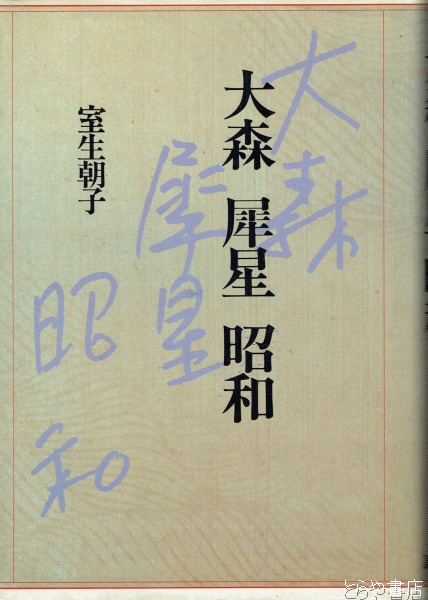 大森 犀星 昭和
室生朝子
大森
犀星
昭和
とらや書店